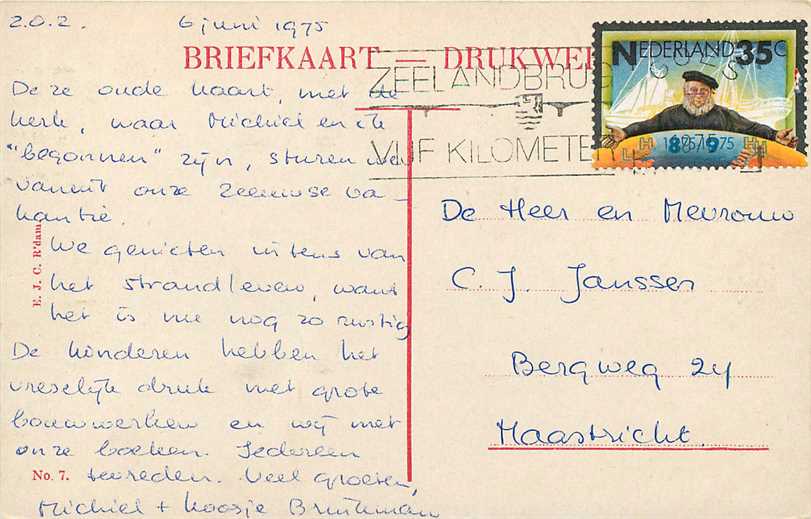 Z.O.Z.
6 juni 1975
BRIEFKAART — DRUKWER
NEDERLAND 35C
ZEELANDBRUG GOES
VIJF KILOMETER
1875/1975
Deze oude kaart, met de
kerk, waar Michiel en ik
"begonnen" zijn, sturen we
vanuit onze Zeeuwse va-
kantie.
We genieten intens van
het strandleven, want
het is nu nog zo rustig
De kinderen hebben het
vreselijk druk met grote
bouwwerken en wij met
onze boeken. Iedereen
tevreden. Veel groeten,
Michiel + Koosje
E. J. C. R'dam
No. 7.
De Heer en Mevrouw
C. J. Janssen
Bergweg 24
Maastricht.